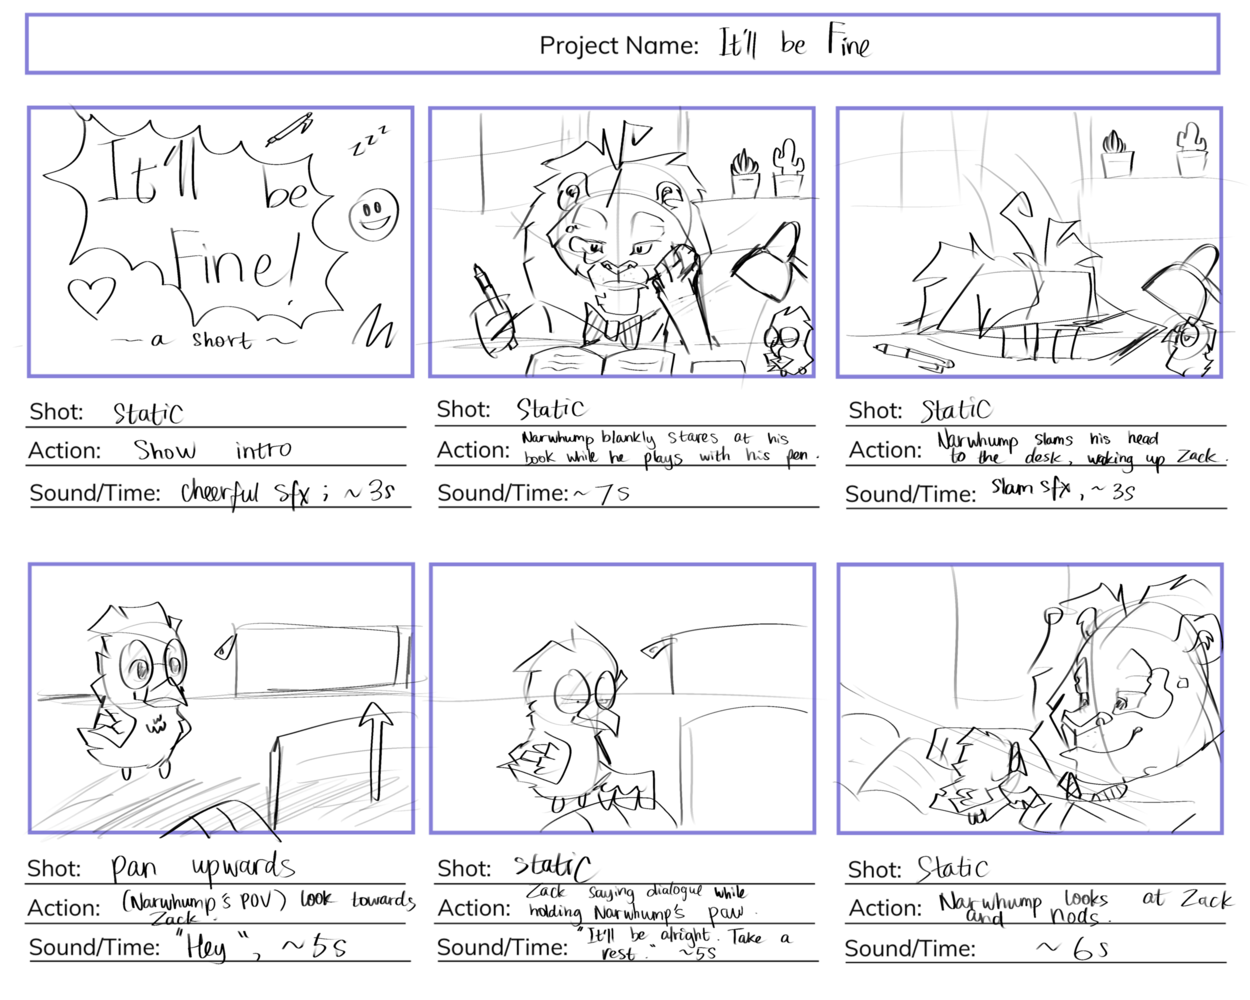 Project Name: It'll be Fine
It'll be
Fine!
~ a short ~
zzz
Shot: Static
Action: Show intro
Sound/Time: cheerful sfx ; ~3s
Shot: Static
Action: Narwhump blankly stares at his
book while he plays with his pen.
Sound/Time: ~7s
Shot: Static
Action: Narwhump slams his head
to the desk, waking up Zack.
Sound/Time: Slam sfx, ~3s
Shot: pan upwards
Action: (Narwhump's POV) look towards
Zack.
Sound/Time: "Hey", ~5s
Shot: Static
Action: Zack saying dialogue while
holding Narwhump's paw.
Sound/Time: "It'll be alright. Take a
rest." ~5s
Shot: Static
Action: Narwhump looks at Zack
and nods.
Sound/Time: ~6s